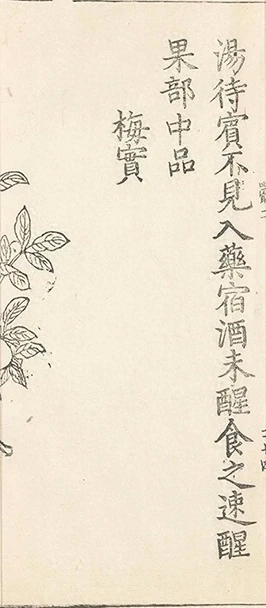 湯待賓不見入藥宿酒未醒食之速醒
果部中品
梅實